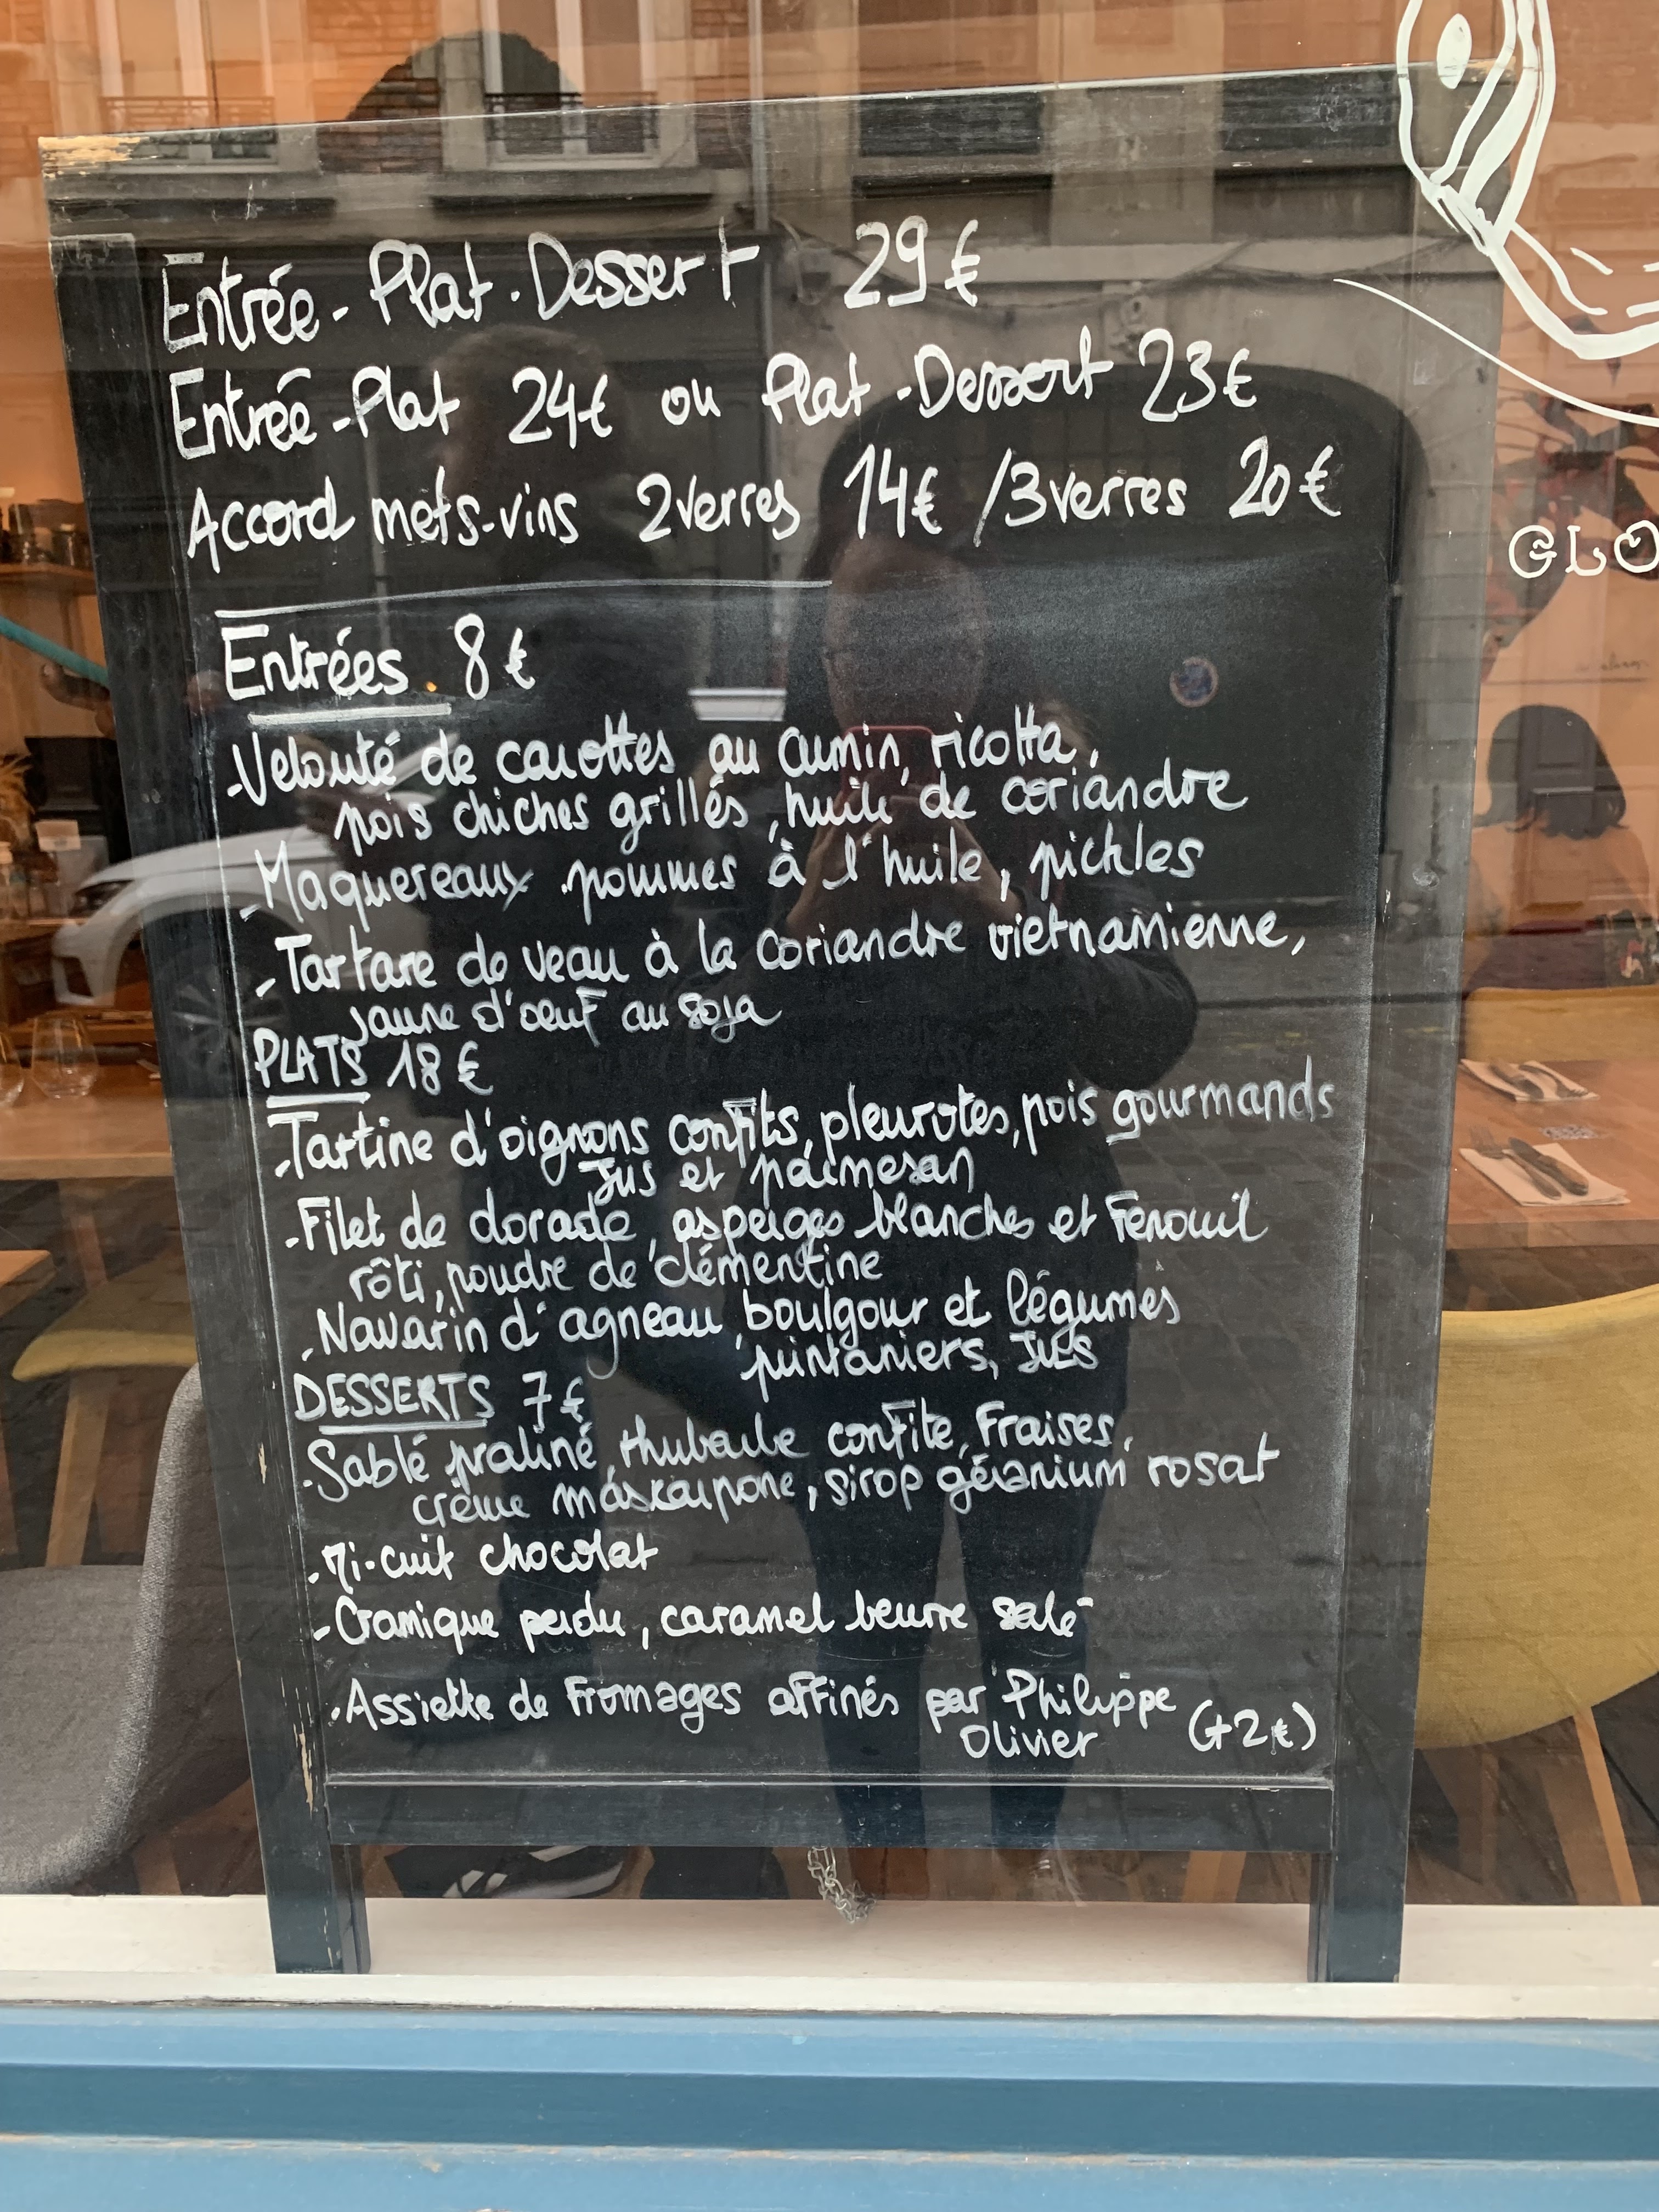 Entrée - Plat - Dessert 29€
Entrée - Plat 24€ ou Plat - Dessert 23€
Accord mets-vins 2 verres 14€ / 3 verres 20€
Entrées 8€
- Velouté de carottes au cumin, ricotta,
pois chiches grillés, huile de coriandre
- Maquereaux pommes à l'huile, pickles
- Tartare de veau à la coriandre vietnamienne,
jaune d'oeuf au soja
PLATS 18€
- Tartine d'oignons confits, pleurotes, pois gourmands
jus et parmesan
- Filet de dorade, asperges blanches et Fenouil
rôti, poudre de clémentine
- Navarin d'agneau, boulgour et légumes
printaniers, jus
DESSERTS 7€
- Sablé praliné, rhubarbe confite, Fraises,
crème mascarpone, sirop géranium rosat
- Mi-cuit chocolat
- Cramique perdu, caramel beurre salé
- Assiette de Fromages affinés par Philippe
Olivier (+2€)
GLO